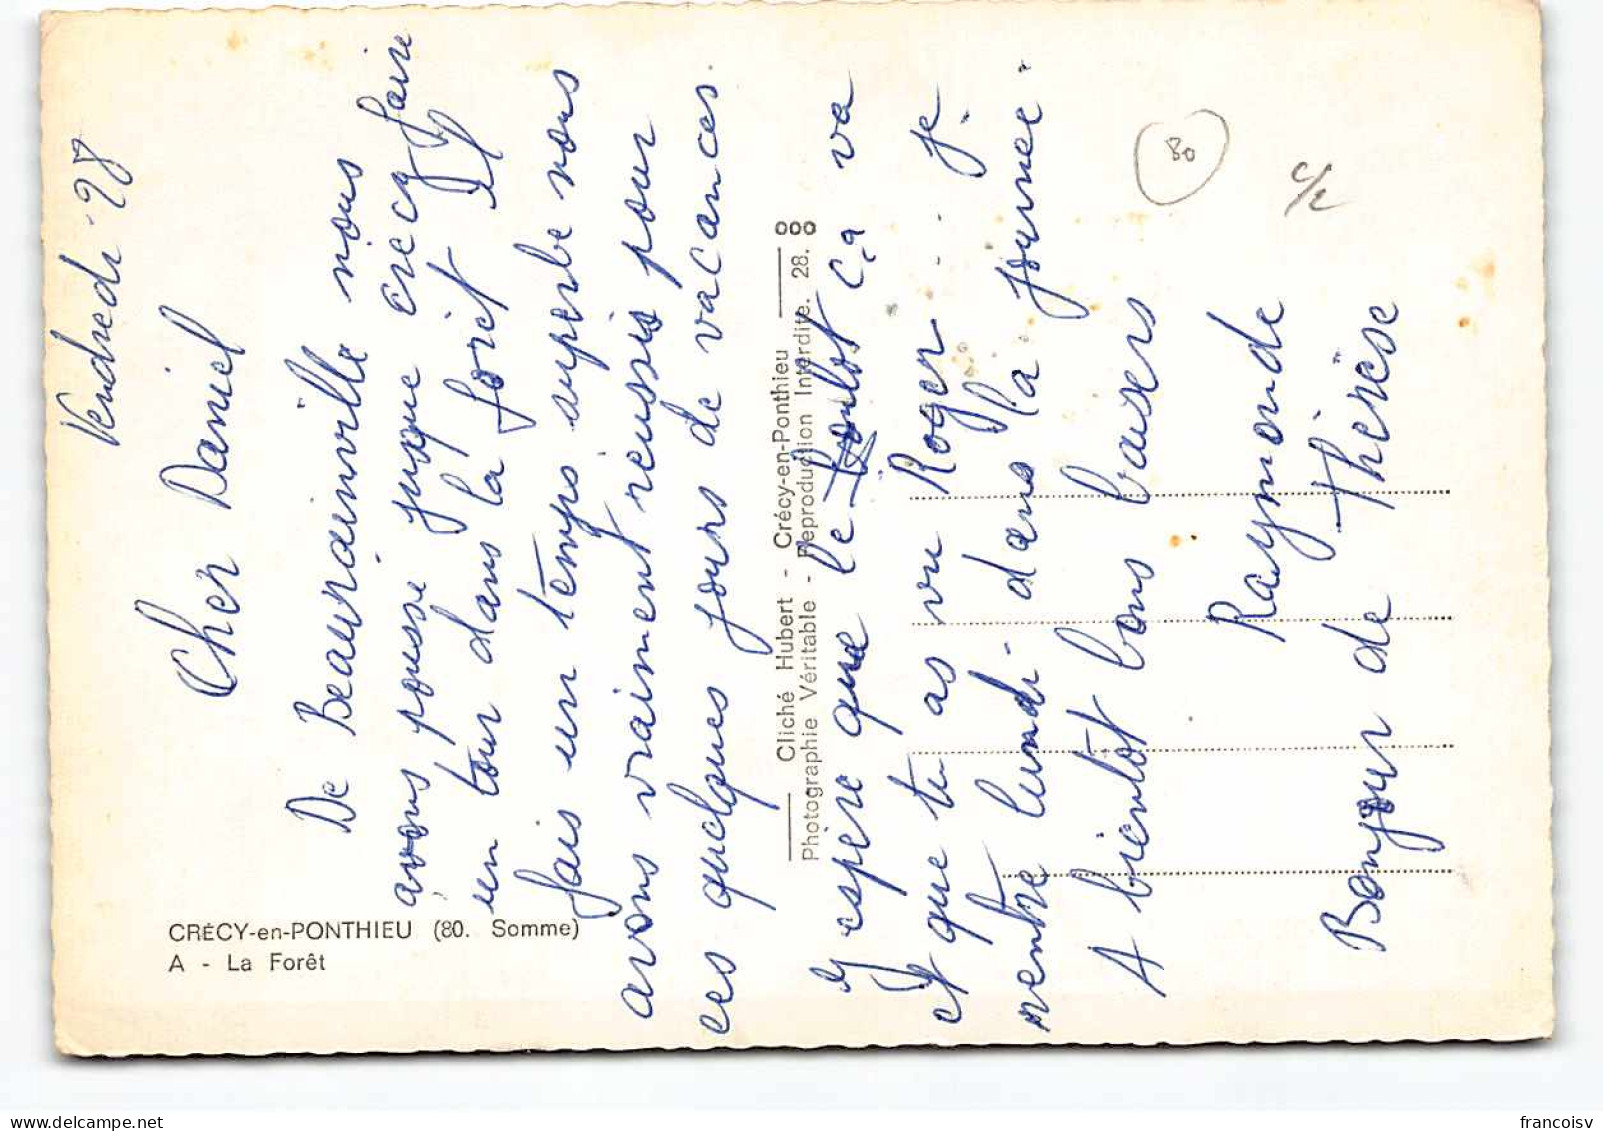 Vendredi 28
Cher Daniel
De Beaurainville nous
avons pousse jusque crecy faire
un tour dans la foret Il
fais un temps superbe nous
avons vraiment reussis pour
ces quelques jours de vacances.
J espère que le boulot ça va
et que tu as vu Roger... je
rentre lundi dans la journée.
A bientôt bons baisers
Raymonde
Bonjour de Thérèse
CRÉCY-en-PONTHIEU (80. Somme)
A - La Forêt
Cliché Hubert - Crécy-en-Ponthieu
Photographie Véritable - Reproduction Interdite. 28.
80
francoisv